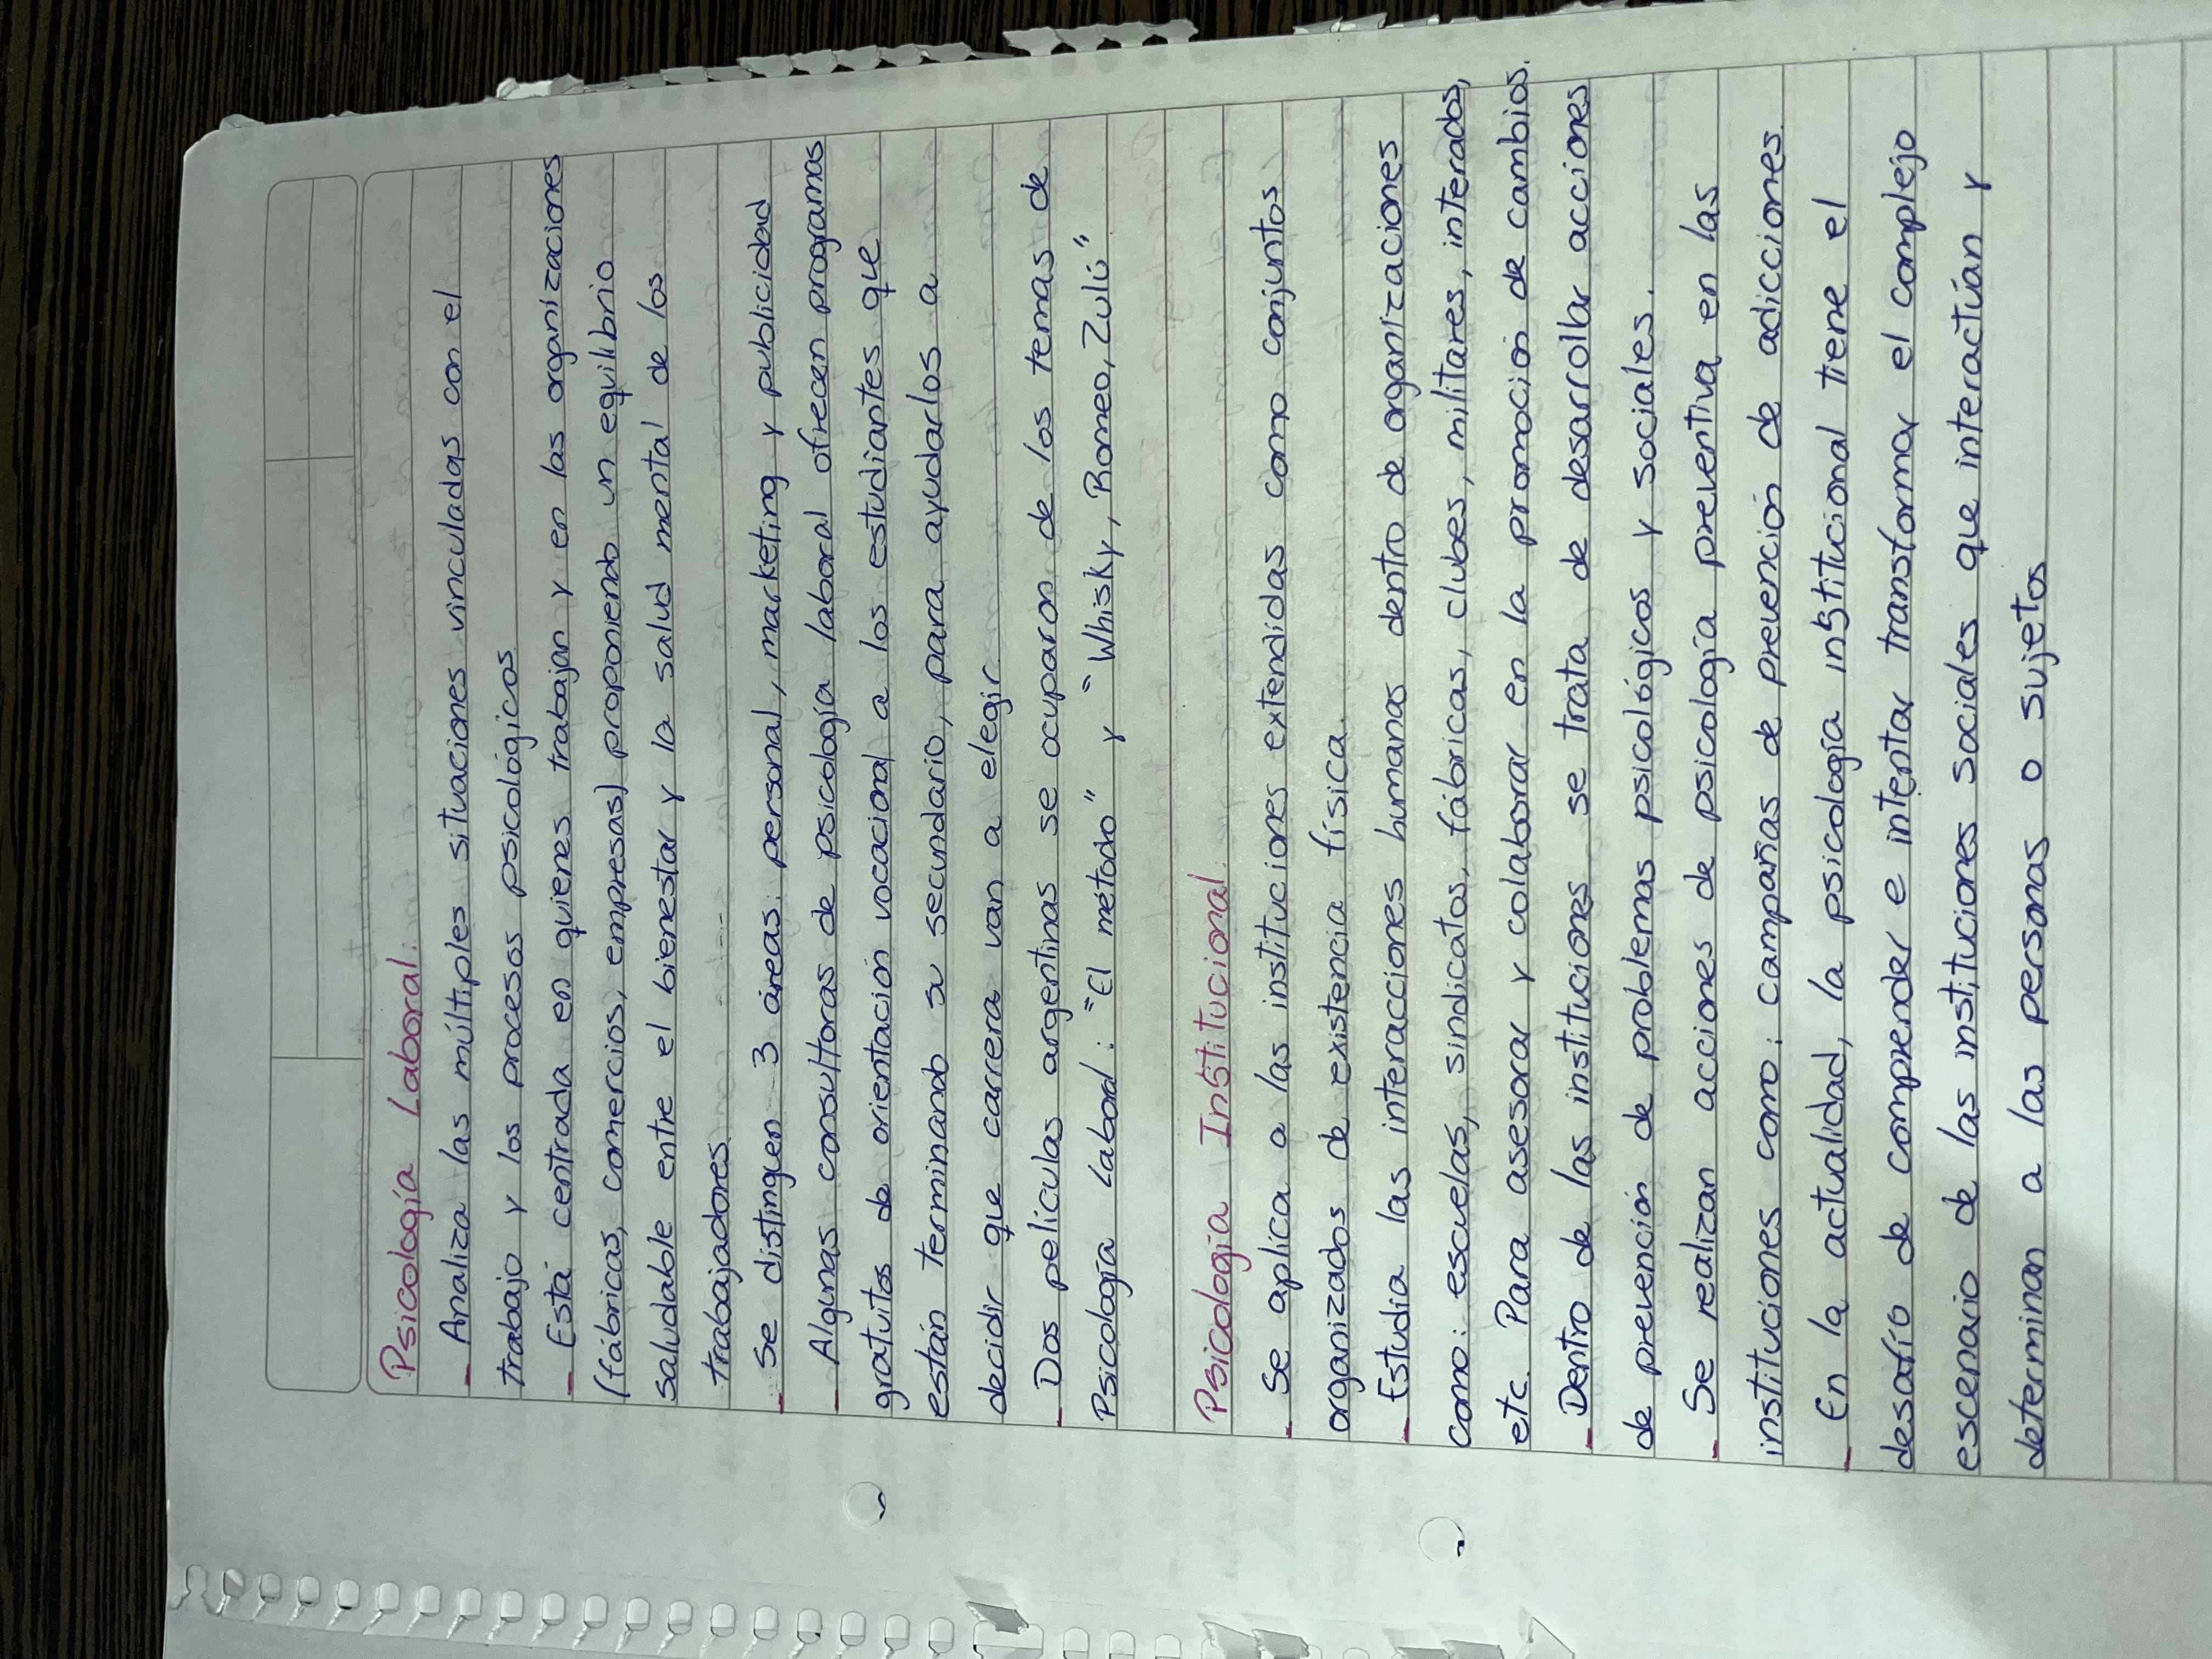 Psicología Laboral:
- Analiza las múltiples situaciones vinculadas con el
trabajo y los procesos psicológicos
- Está centrada en quienes trabajan y en las organizaciones
(fábricas, comercios, empresas) proponiendo un equilibrio
saludable entre el bienestar y la salud mental de los
trabajadores
- Se distinguen 3 áreas: personal, marketing y publicidad
- Algunas consultoras de psicología laboral ofrecen programas
gratuitos de orientación vocacional a los estudiantes que
están terminando su secundario, para ayudarlos a
decidir que carrera van a elegir.
- Dos películas argentinas se ocuparon de los temas de
Psicología Laboral: "El método" y "Whisky, Romeo, Zulú"
Psicología Institucional:
- Se aplica a las instituciones extendidas como conjuntos
organizados de existencia física.
- Estudia las interacciones humanas dentro de organizaciones
como: escuelas, sindicatos, fábricas, clubes, militares, interados,
etc. Para asesorar y colaborar en la promoción de cambios.
- Dentro de las instituciones se trata de desarrollar acciones
de prevención de problemas psicológicos y sociales.
- Se realizan acciones de psicología preventiva en las
instituciones como: campañas de prevención de adicciones.
- En la actualidad, la psicología institucional tiene el
desafío de comprender e intentar transformar el complejo
escenario de las instituciones sociales que interactúan y
determinan a las personas o sujetos